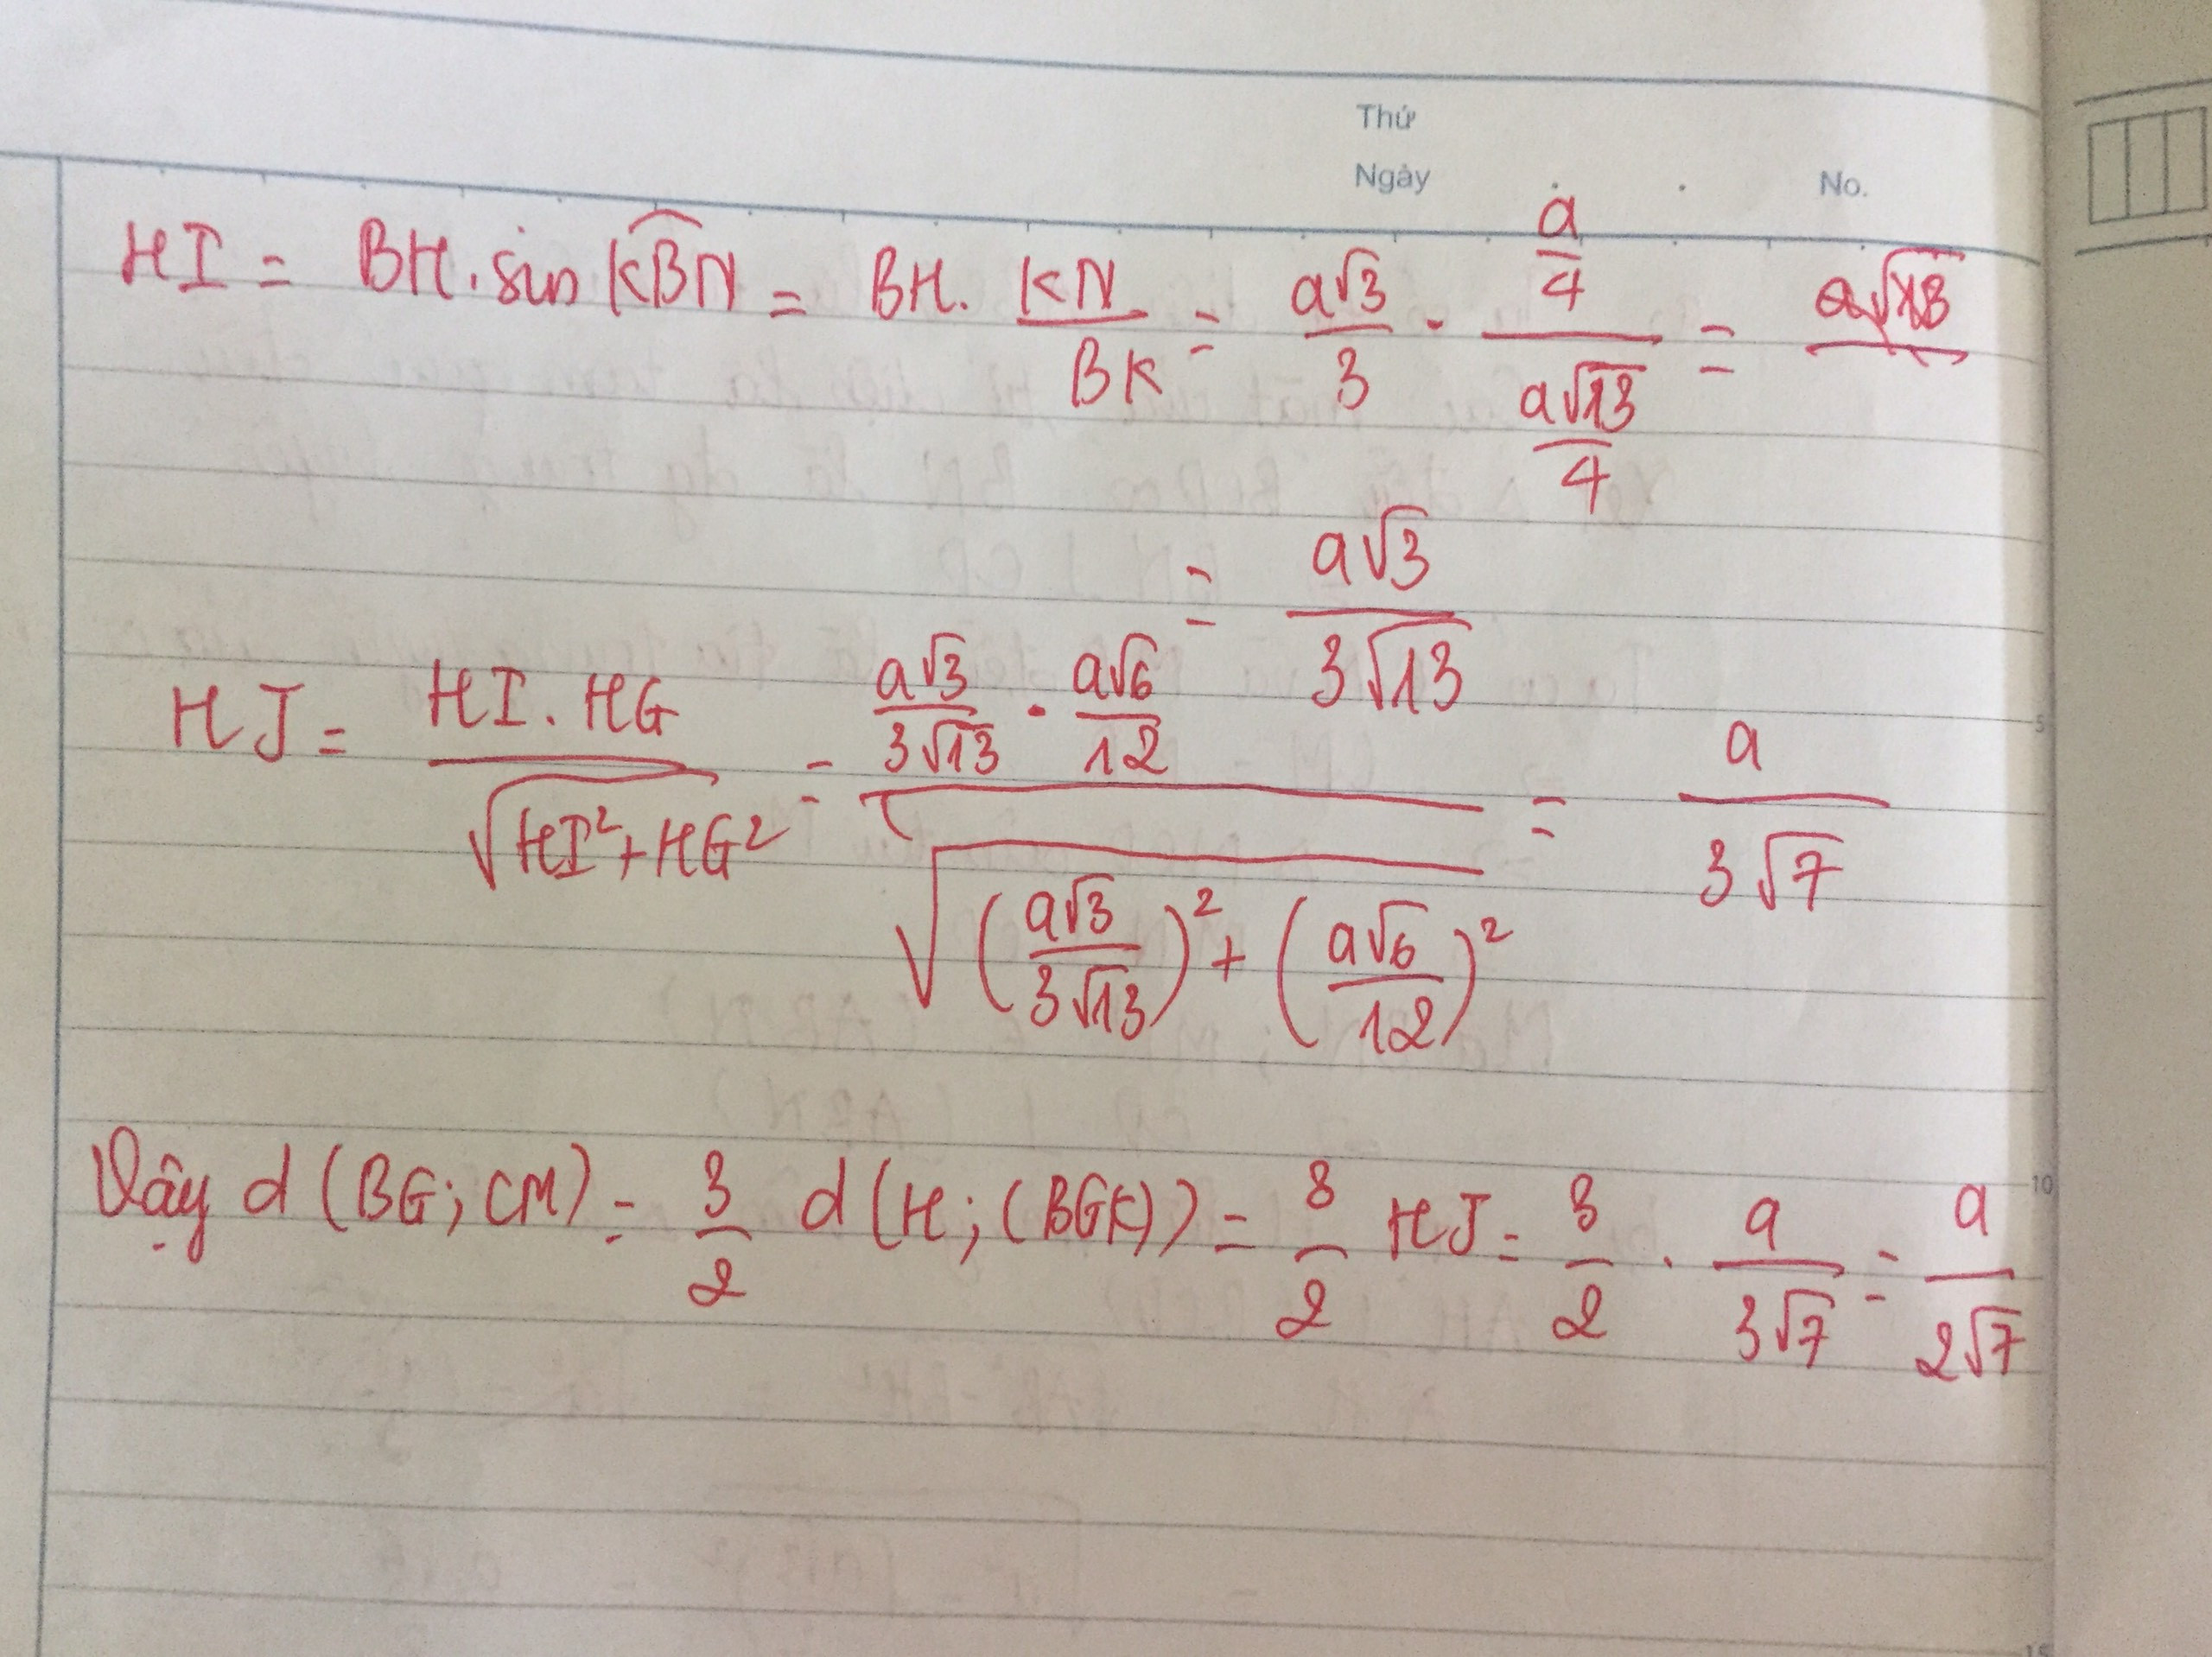 Thứ
Ngày . . No.
HI = BH. sin KBN = BH. KN/BK = a√3/3 . (a/4)/(a√13/4) =
= a√3/(3√13)
HJ = HI. HG/√(HI²+HG²) = (a√3/(3√13) . a√6/12)/√((a√3/(3√13))² + (a√6/12)²) = a/(3√7)
Vậy d (BG; CM) = 3/2 d (H; (BGK)) = 3/2 HJ = 3/2 . a/(3√7) = a/(2√7)
5
10
15